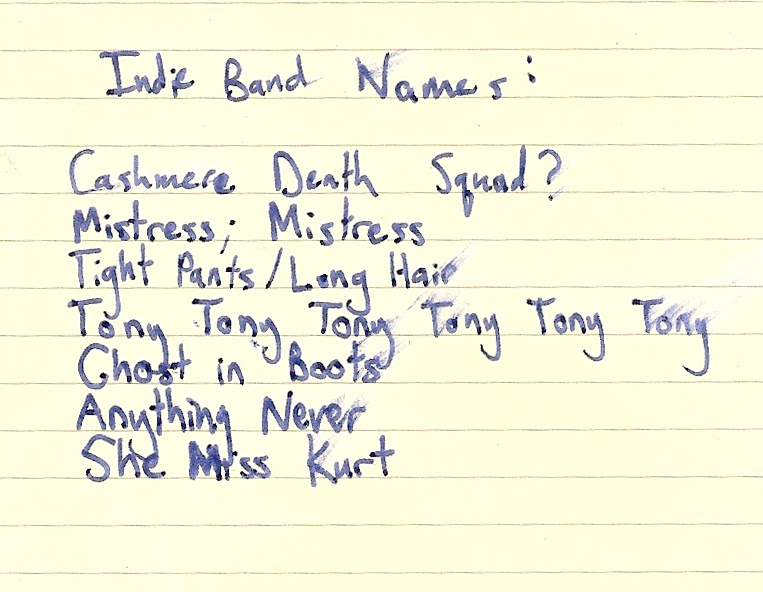 Indie Band Names:
Cashmere Death Squad?
Mistress; Mistress
Tight Pants/Long Hair
Tony Tony Tony Tony Tony Tony
Ghost in Boots
Anything Never
She Miss Kurt